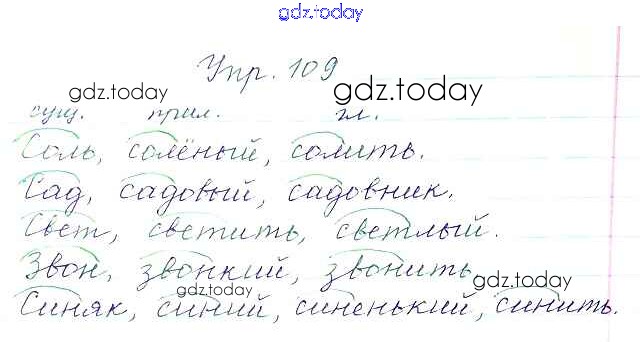 gdz.today
Упр. 109
gdz.today gdz.today
сущ. прил. гл.
Соль, солёный, солить.
Сад, садовый, садовник.
Свет, светить, светлый.
Звон, звонкий, звонить.
gdz.today gdz.today
Синяк, синий, синенький, синить.